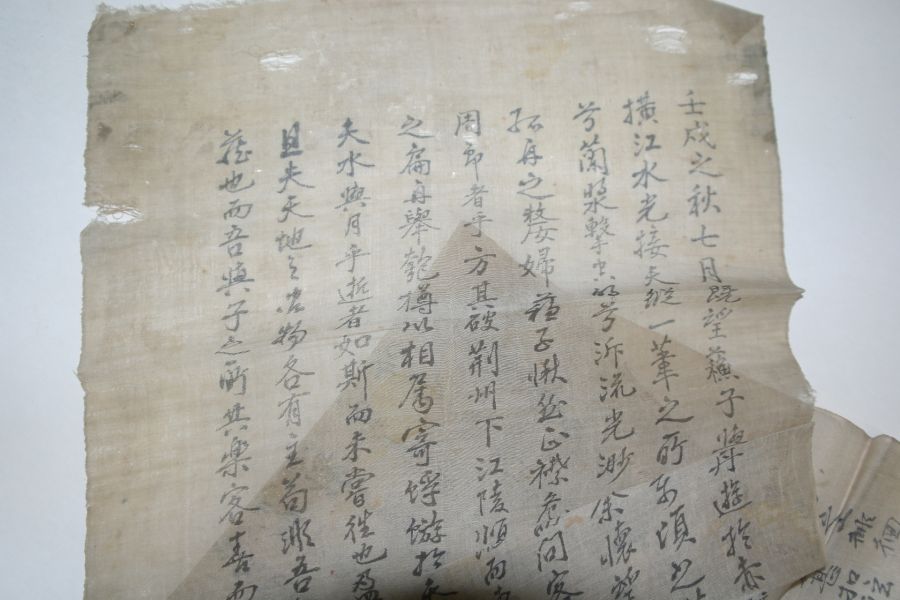 壬戌之秋七月旣望蘓子遊於赤
橫江水光接天縱一葦之所万頃之
兮蘭槳擊空明兮泝流光渺余懷望
孤舟之嫠婦蘓子愀然正襟危問客
周郎者乎方其破荊州下江陵順而
之扁舟舉匏樽以相属寄蜉蝣於天
夫水與月乎逝者如斯而未嘗徃也盈
且夫天地之間物各有主苟非吾
蔵也而吾與子之所共樂客喜而